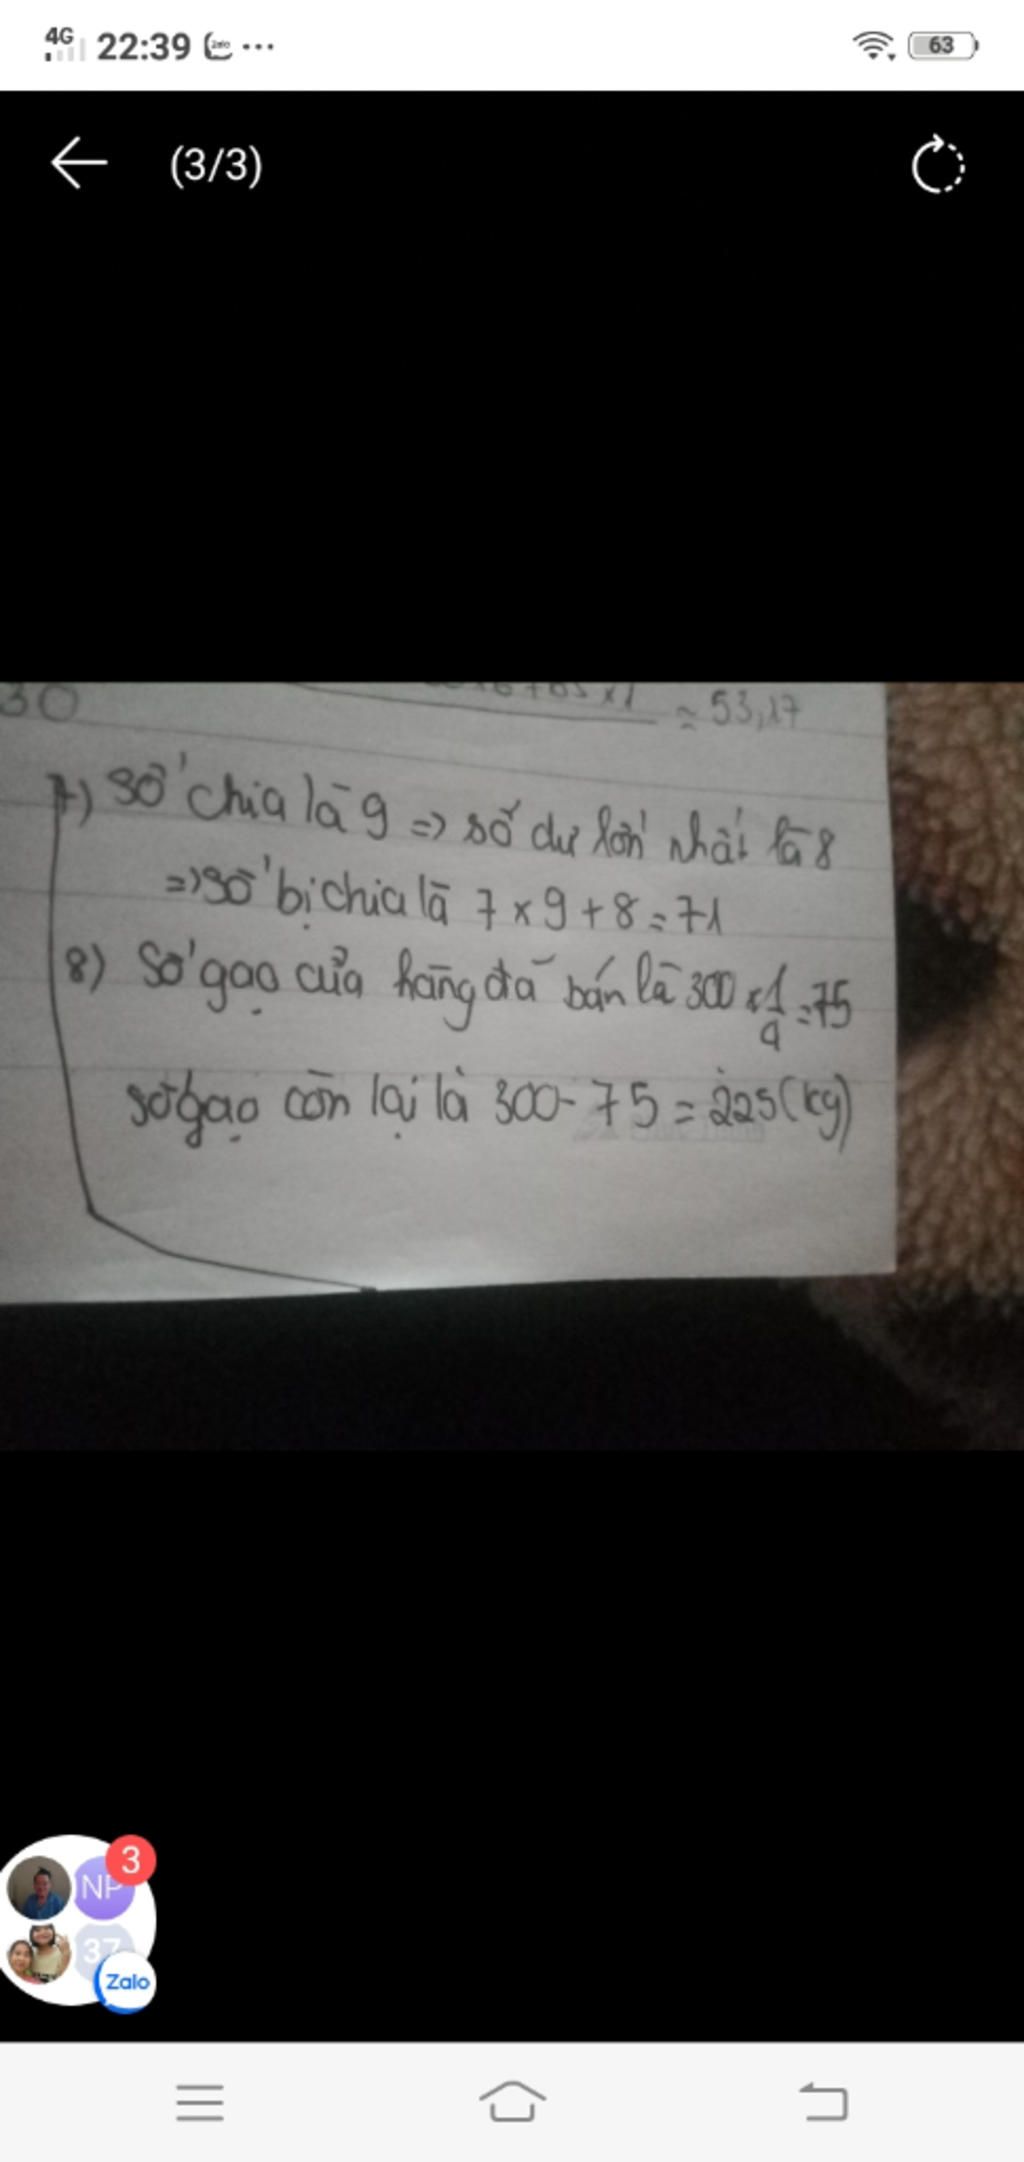 4G 22:39 ... 63
(3/3)
30 ≈ 53,17
7) số chia là 9 => số dư lớn nhất là 8
=> số bị chia là 7 x 9 + 8 = 71
8) Số gạo cửa hàng đã bán là 300 x 1/4 = 75
số gạo còn lại là 300 - 75 = 225 (kg)
3
NP
37
Zalo